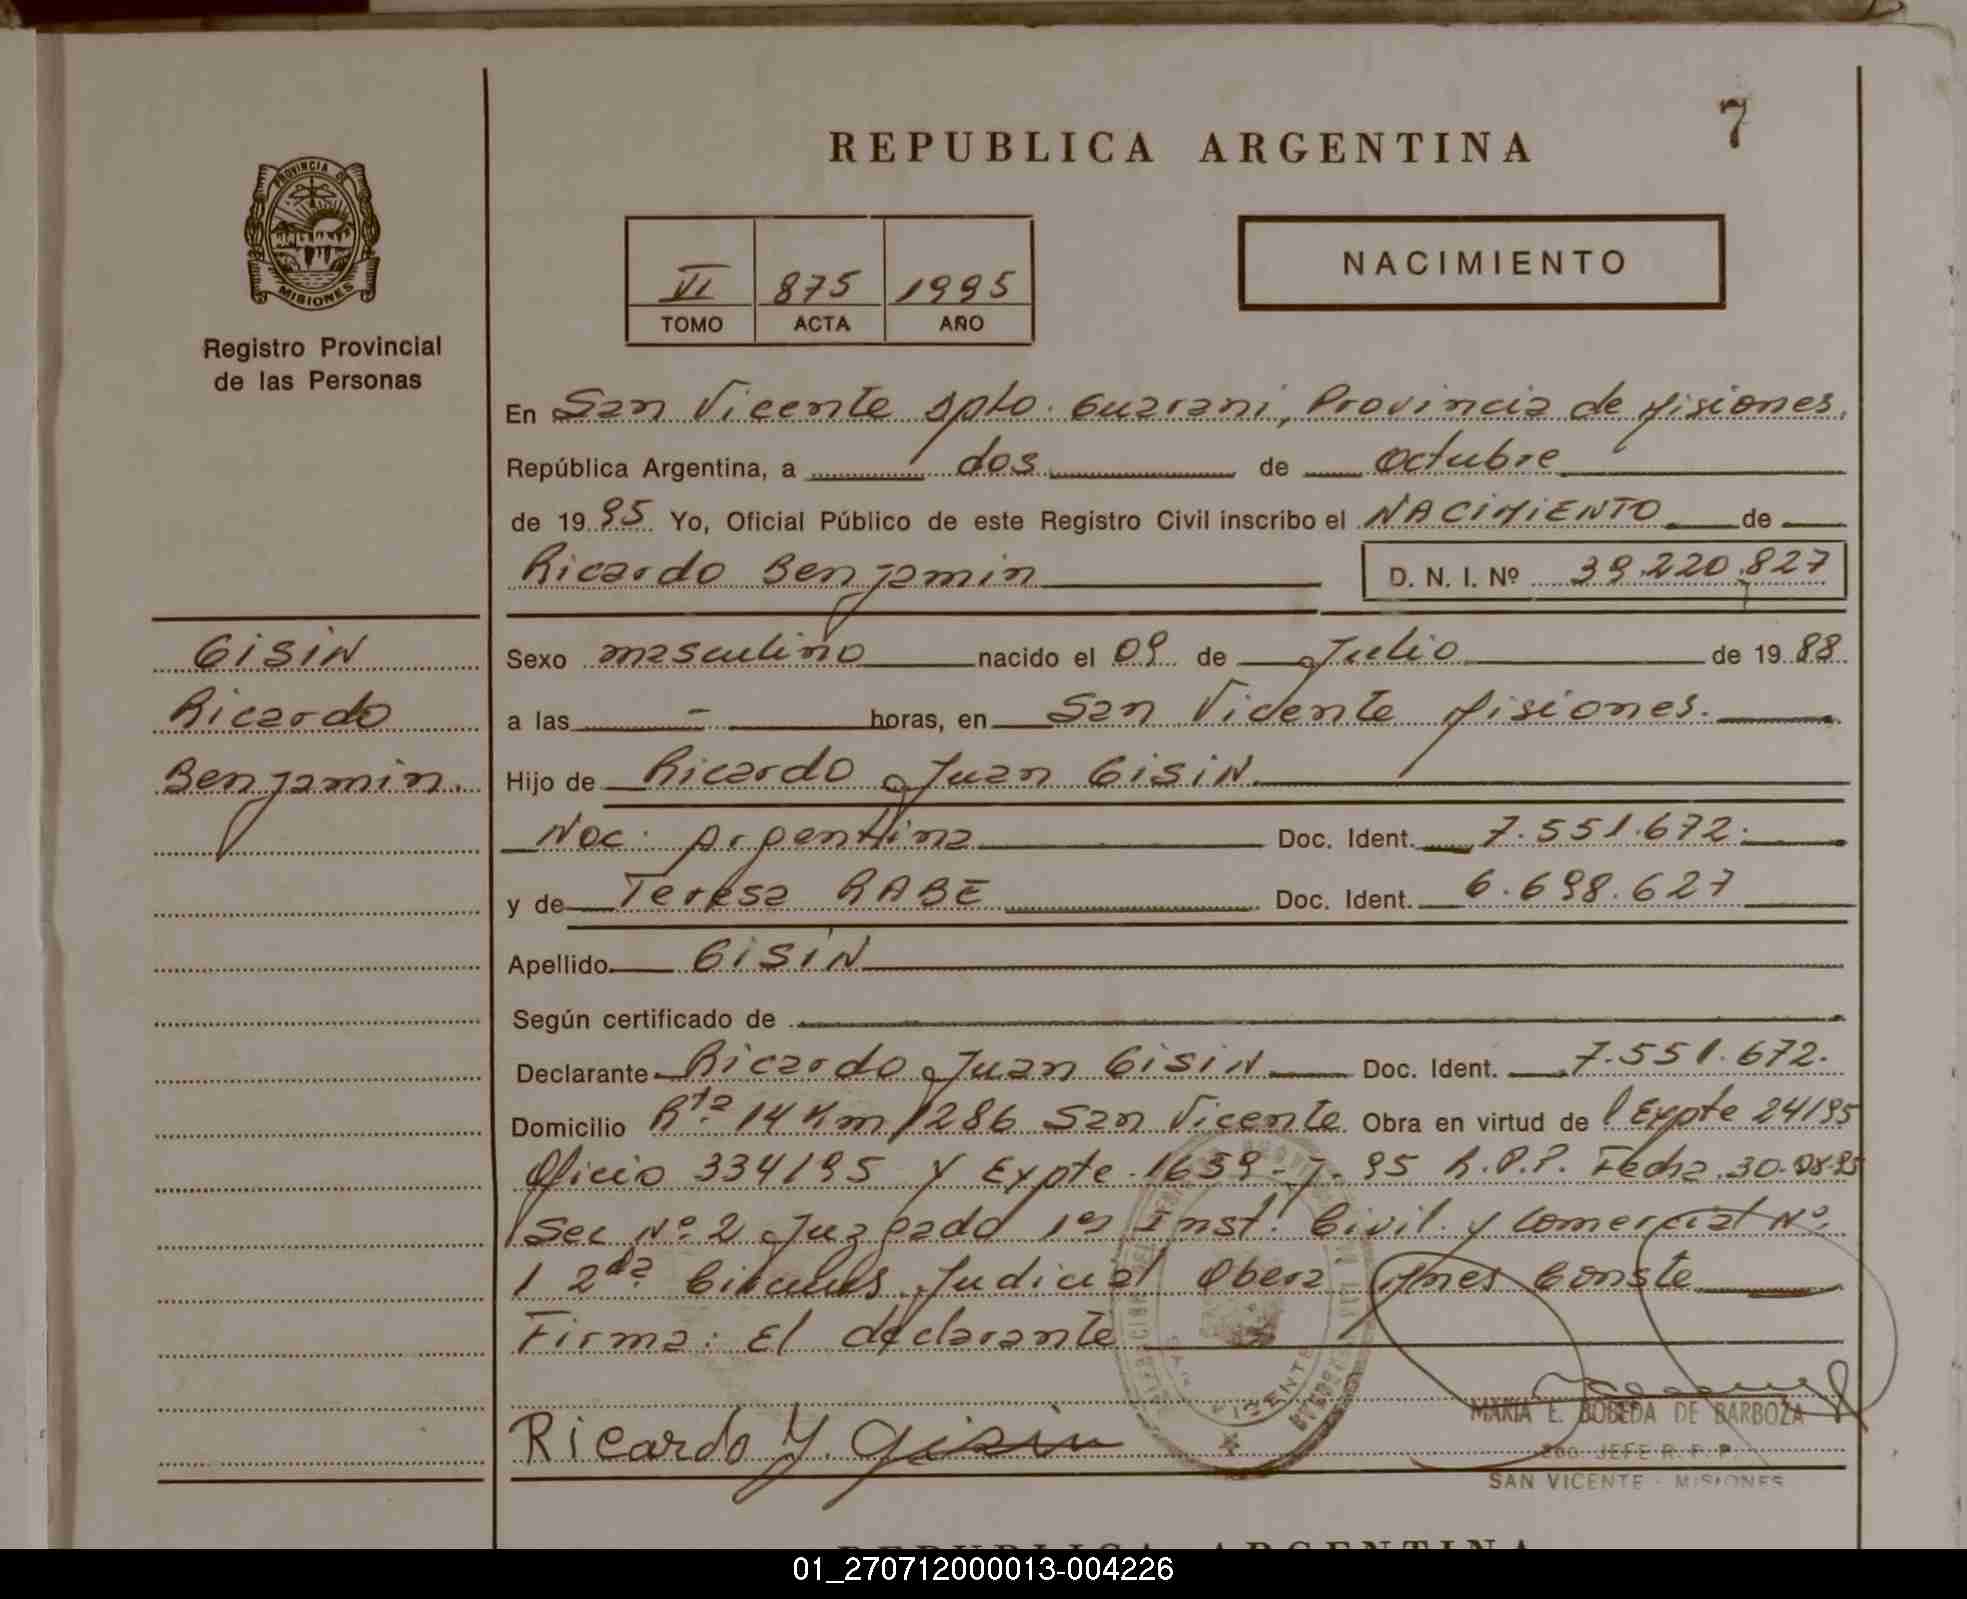 7
REPUBLICA ARGENTINA
PROVINCIA DE
MISIONES
Registro Provincial
de las Personas
NACIMIENTO
VI 875 1995
TOMO ACTA AÑO
En San Vicente Dpto. Guarani, Provincia de Misiones,
República Argentina, a dos de Octubre
de 1995 Yo, Oficial Público de este Registro Civil inscribo el NACIMIENTO de
Ricardo Benjamin D. N. I. Nº 39.220.827
GISIN
Ricardo
Benjamin.
Sexo masculino nacido el 09 de Julio de 1988
a las - horas, en San Vicente Misiones.
Hijo de Ricardo Juan GISIN
Nac: Argentina Doc. Ident. 7.551.672.
y de Teresa RABE Doc. Ident. 6.698.627
Apellido GISIN
Según certificado de
Declarante Ricardo Juan GISIN Doc. Ident. 7.551.672.
Domicilio Rta. 14 Km 1286 San Vicente Obra en virtud de Expte 24/95
Oficio 334/95 y Expte 1659-J-95 R.P.P. Fecha 30-08-95
Sec Nº 2 Juzgado 1ra Inst. Civil y Comercial Nº
1 2da Judicial Obera Mnes Conste
Firma: El declarante
Ricardo J. Gisin
VICENTE
MARIA E. BOBEDA DE BARBOZA
2do. JEFE R. P. P.
SAN VICENTE - MISIONES
REPUBLICA ARGENTINA
01_270712000013-004226